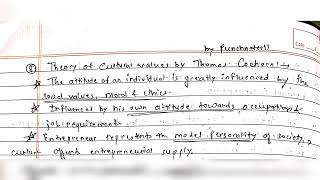 by Punchnotes!!
⑧ Theory of Cultural values by Thomas Cochran!-
* The attitude of an individual is greatly influenced by the
values, moral & ethics.
* Influenced by his own attitude towards occupation &
job requirements
* Entrepreneur represents the model personality of society,
affects entrepreneurial supply.